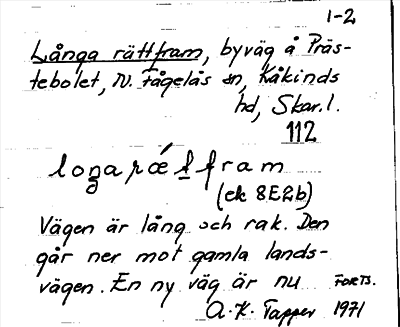 1-2
Långa rättfram, byväg å Präs-
tebolet, N. Fågelås sn, Kåkinds
hd, Skar. l.
112
(ek 8E2b)
Vägen är lång och rak. Den
går ner mot gamla lands-
vägen. En ny väg är nu FORTS.
A. K. Tapper 1971